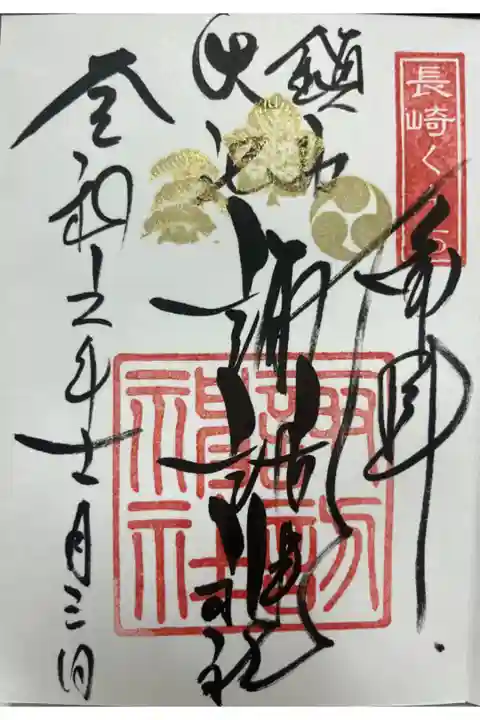 長崎くんち
奉拝
鎮西
大社
諏訪神社
諏訪
神社
令和五年十一月三日